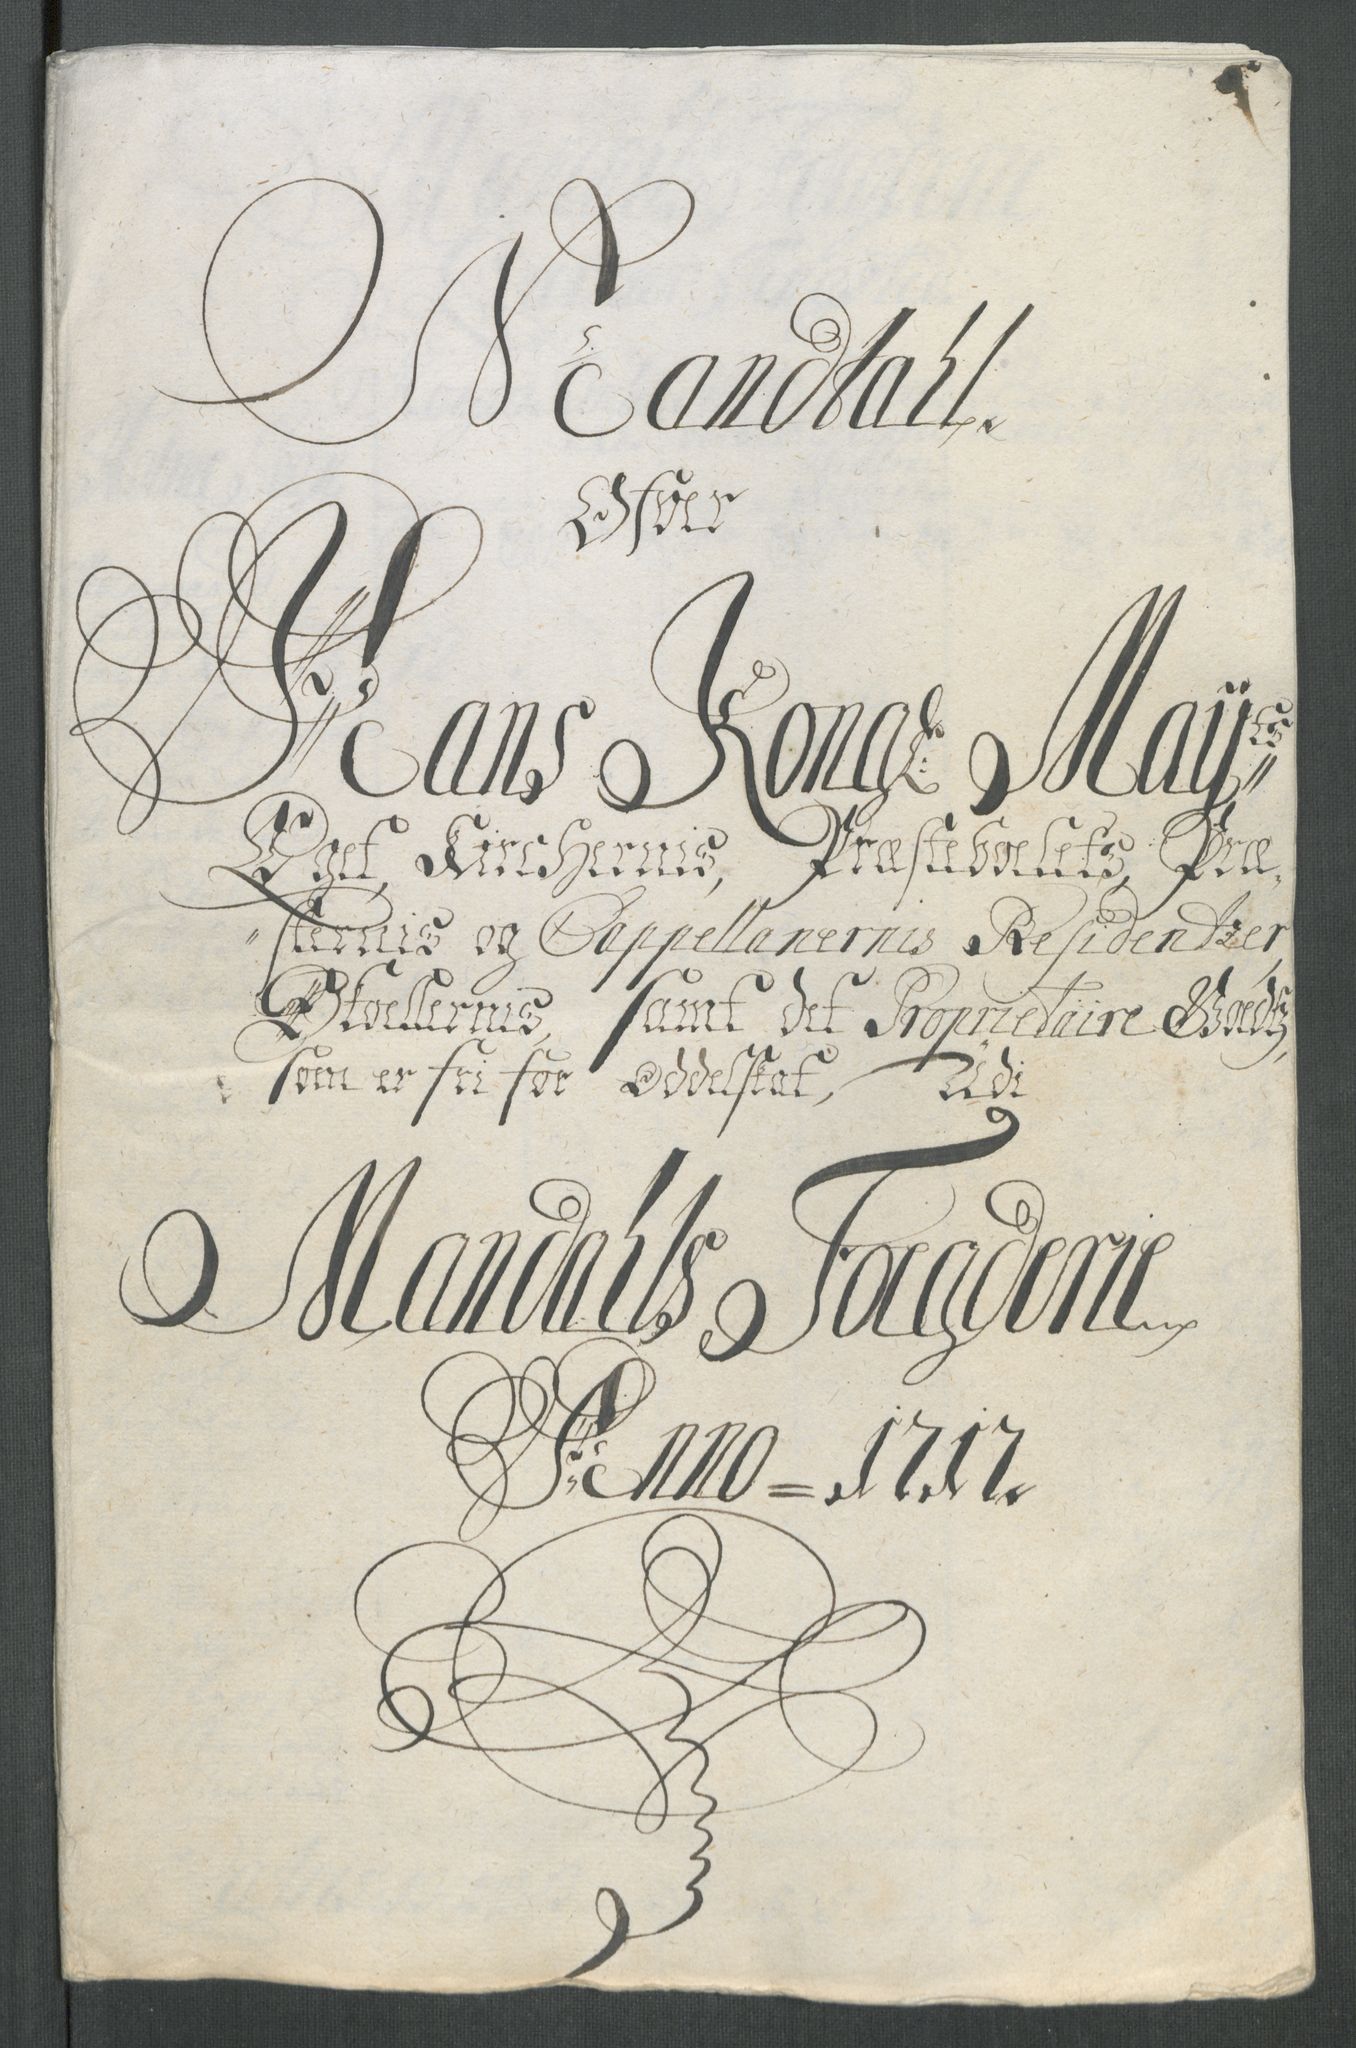 Mandtahl
Ofver
Hans Kongl: Maÿts
Eget, Kirchernis, Præstebolets, Præ-
sternis og Cappellanernis Residentzer,
Skollernis, samt det Proprietaire Goedtz,
som er fri for Oddelskat, Udi
Mandahls Fogderie
Anno = 1717.